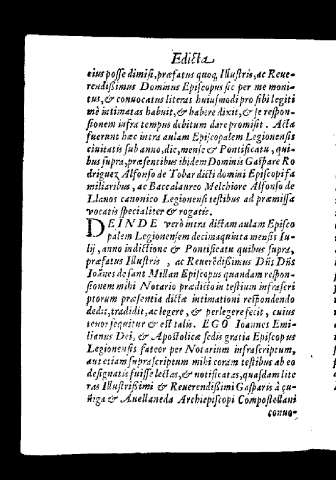 Edicta
eius posse dimisi, præfatus quoq; Illustris, ac Reue-
rendissimus Dominus Episcopus sic per me moni-
tus, & conuocatus literas huiusmodi pro sibi legiti
mè intimatas habuit, & habere dixit, & se respon-
sionem infra tempus debitum dare promisit. Acta
fuerunt hæc intra aulam Episcopalem Legionensis
ciuitatis sub anno, die, mense & Pontificatu, qui-
bus supra, præsentibus ibidem Dominis Gaspare Ro
driguez Alfonso de Tobar dicti domini Episcopi fa
miliaribus, ac Baccalaureo Melchiore Alfonso de
Llanos canonico Legionensi testibus ad præmissa
vocatis specialiter & rogatis.
DEINDE verò intra dictam aulam Episco
palem Legionensem decimaquinta mensis Iu-
lij, anno indictione & Pontificatu quibus supra,
præfatus Illustris, ac Reuerēdissimus Dūs Dūs
Ioānes de sant Millan Episcopus quandam respon-
sionem mihi Notario prædicto in testium infrascri
ptorum præsentia dicta intimationi respondendo
dedit, tradidit, ac legere, & perlegere fecit, cuius
tenor sequitur & est talis. EGO Ioannes Emi-
lianus Dei, & Apostolicæ sedis gratia Episcopus
Legionensis fateor per Notarium infrascriptum,
aut etiam suprascriptum mihi coram testibus ab eo
designatis fuisse lectas, & notificatas, quasdam lite
ras Illustrissimi & Reuerendissimi Gasparis à çu-
ñiga & Auellaneda Archiepiscopi Compostellani
conuo-